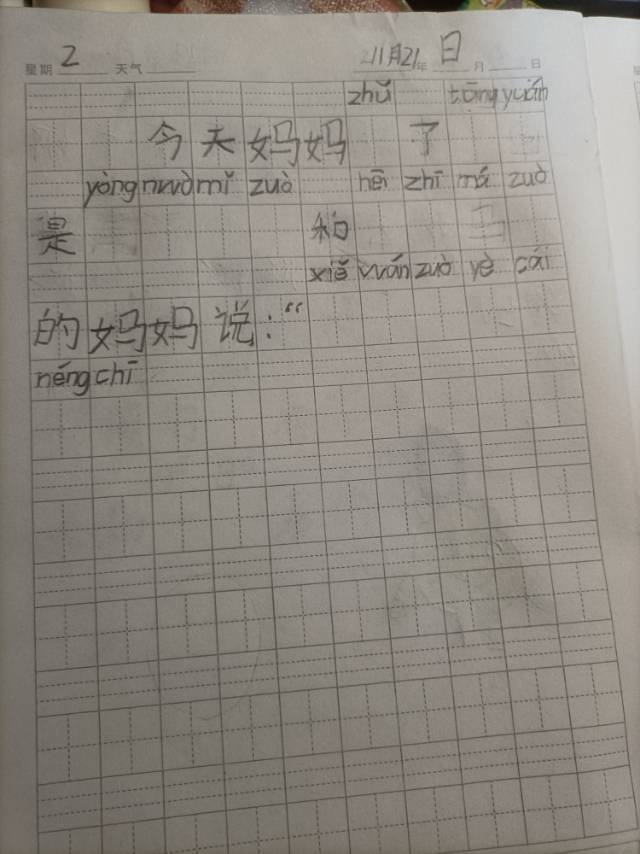 星期 2 天气 11月21年 日 月 日
zhǔ tāng yuán
今天妈妈 了
yòng nuò mǐ zuò hēi zhī má zuò
是 和
xiě wán zuò yè cái
的妈妈说：“
néng chī